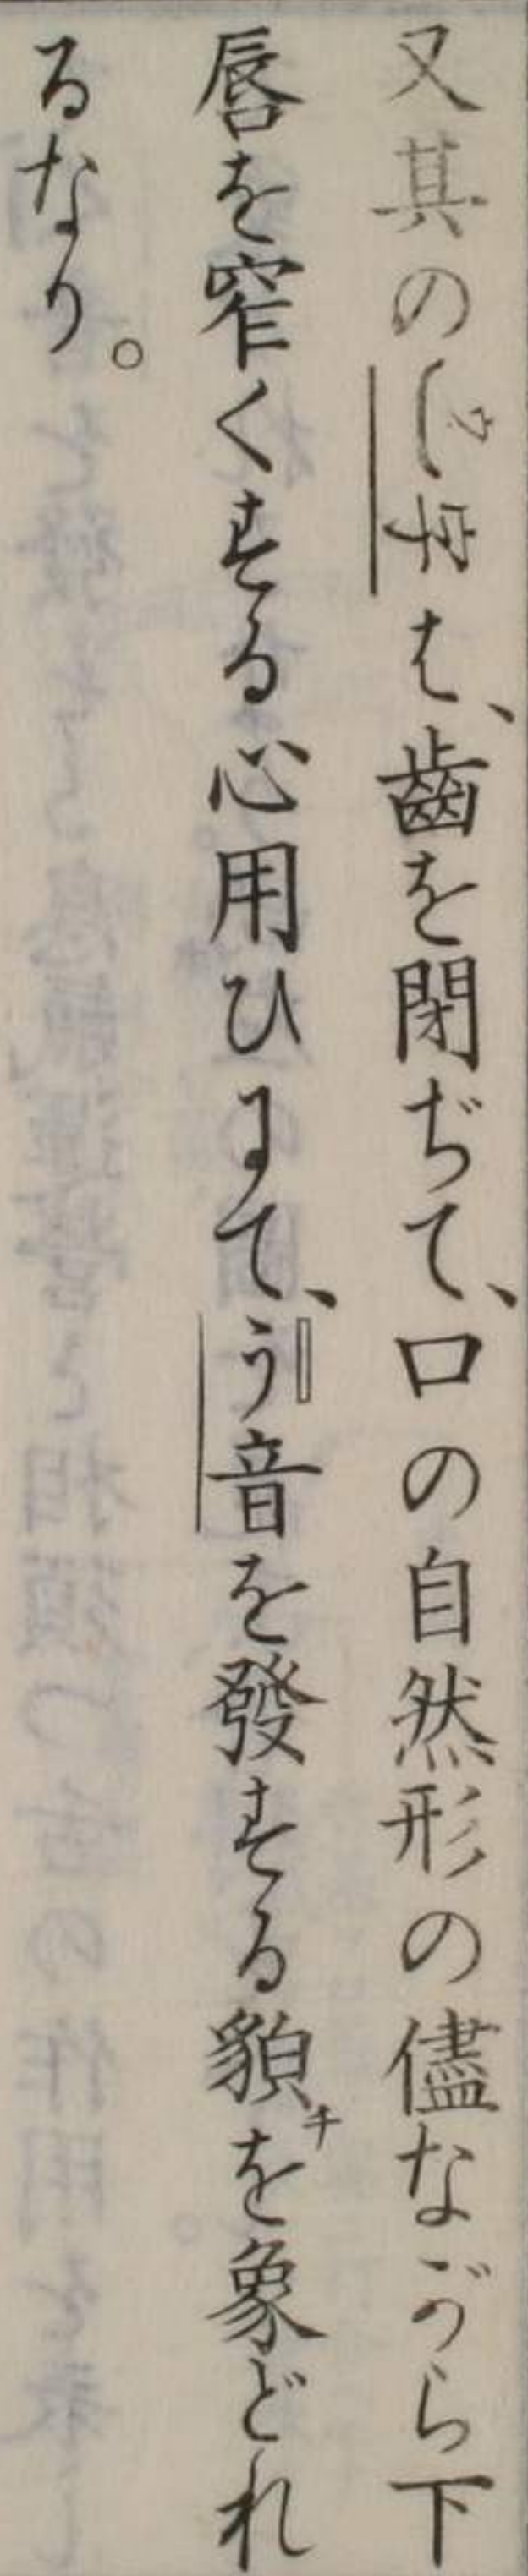 又其のじは、齒を閉ぢて、口の自然形の儘ながら下
唇を窄くする心用ひにて、う音を發する貌チを象どれ
るなり。